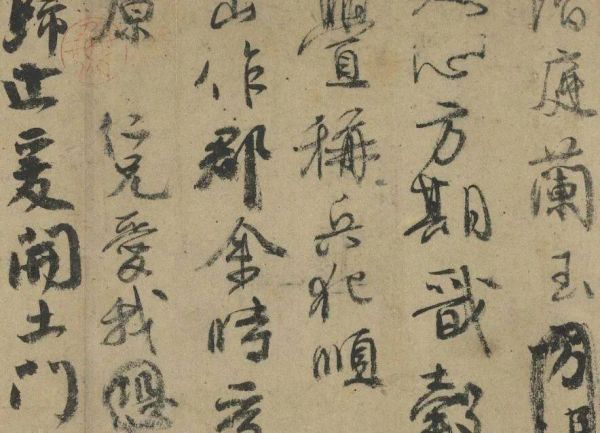 階庭蘭玉方
心方期戩穀
釁稱兵犯順
山作郡余時
原仁兄愛我
歸止爰開土門